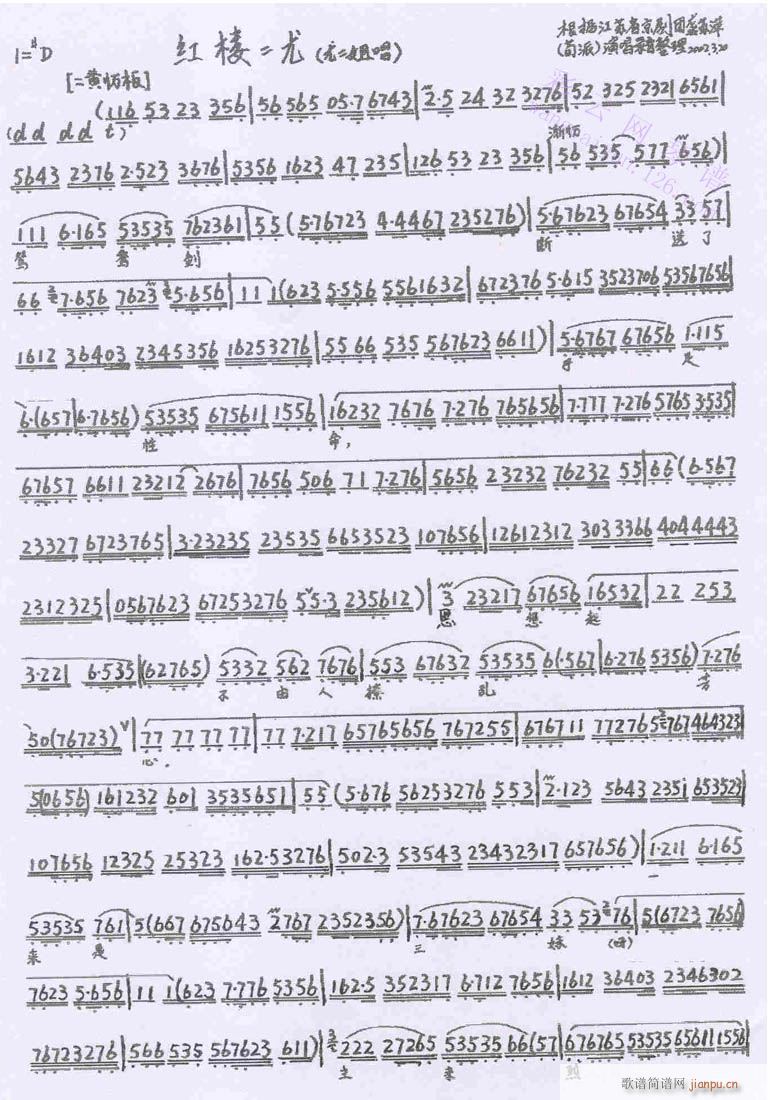 红楼二尤(尤二姐唱)
根据江苏省京剧团
(荀派)演唱录音整理2002.3.20
1=#D
[二黄慢板]
(116 53 23 356|56 565 05·7 6743|2·5 24 32 3276|52 325 232|6561|
(d d d d t)
渐慢
5643 2376 2·523 3676|5356 1623 47 235|126 53 23 356|56 535 577 656)|
111 6·165 53535 762361|55(5·76723 4·4467 235276)|5·67623 67654 33 57|
鸳 鸯 剑 断 送 了
66 7·656 7623 5·656|11 1(623 5·556 5561632|672376 5·615 3523706 53567656|
1612 36403 2345356 16253276|55 66 535 567623 6611)|5·6767 67656 1·115
手 足
6·(657|6·7656) 53535 675611 1556|16232 7676 7·276 765656|7·777 7·276 5765 3·535|
性 命,
67657 6611 23212 2676|7656 506 71 7·276|5656 23232 76232 55|66(6·567
23327 6723765|3·23235 23535 6653523 107656|12612312 3033366 4044443
2312325|0567623 67253276 55·3 235612)|3 23217 67656 16532|22 253
思 想 起
3·221 6·535|(62765) 5332 562 7676|553 67632 53535 6(·567|6·276 5356) 7·276
不 由 人 撩 乱 芳
50(76723)|77 77 77 77|77 7·217 65765656 767255|676711 772765 767464323|
心,
5(0656) 161232 601 3535651|55(5·676 56253276 553|2·123 5643 2351 653523|
107656 12325 25323 162·53276|502·3 53543 23432317 657656)|1·211 6·165
一
53535 761|5(667 675643 2767 2352356)|7·67623 67654 33 53 76|5(6723 7656)
来 是 三 妹 (呀)
7623 5·656|11 1(623 7·776 5356|162·5 352317 6·712 7656|1612 36403 2346302
76723276|566 535 567623 611)|222 27265 53535 66(57|676765 53535 65611 1556|
生 来 烈
歌谱简谱网 jianpu.cn